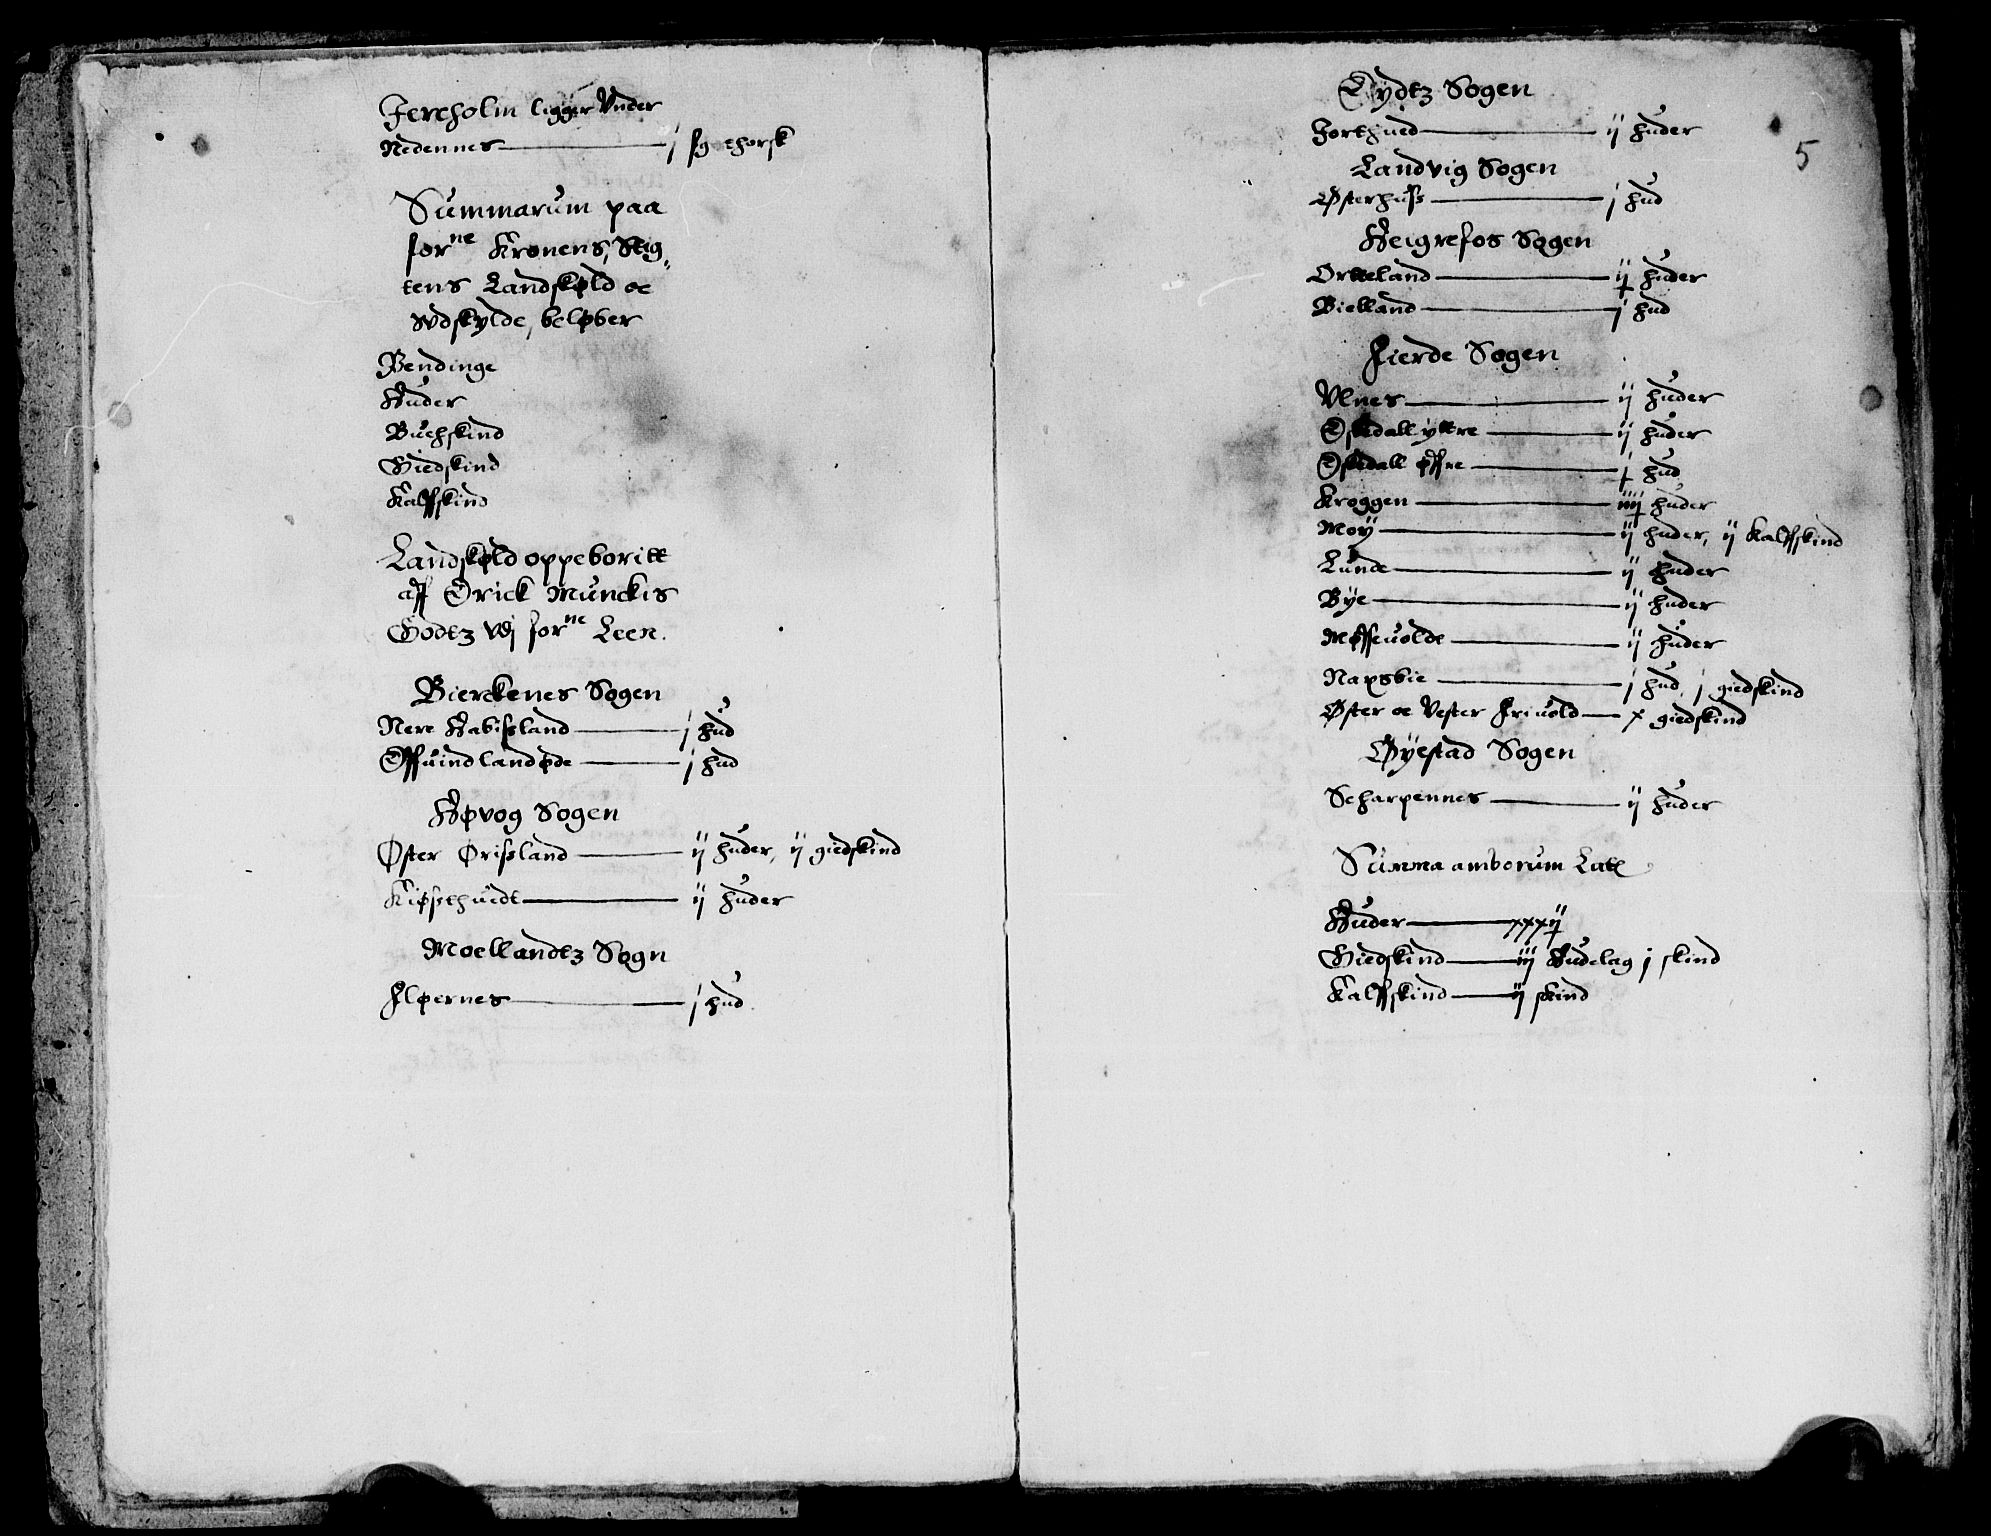 Jereholm ligger Vnder
Nedennes — j sg thorsk
Summarum paa
for^ne Kronens, Stig„
tens Landskyld oc
Vdskylde, beløber
Bendinge
Huder
Buchskind
Giedskind
Kalffskind
Landskyld oppeboritt
aff Erick Munckis
Godtz vdj for^ne Leen.
Bierckenes Sogen
Nere Habissland — j hud
Offuindlandøde — j hud
Høvog Sogen
Øster Ørissland — ij huder, ij giedskind
Kiøssthuedt — ij huder
Moellandtz Sogn
Fløernes — j hud
5
Eydtz Sogen
Forthued — ij huder
Landvig Sogen
Østerhuss — j hud
Heigrefos Sogen
Orkeland — ij huder
Bielland — j hud
Fierde Sogen
Vlnes — ij huder
Eskedall yttre — ij huder
Eskedall øffre — j hud
Kroggen — iiij huder
Moy — ij huder, ij Kalffskind
Lunde — ij huder
Bye — ij huder
Møsseuolde — ij huder
Napsbie — j hud, j giedskind
Øster oc Vester Friuold — x giedskind
Øyestad Sogen
Scharpennes — ij huder
Summa amborum Late
Huder — xxxij
Giedskind — iij Hudelag j skind
Kalffskind — ij skind